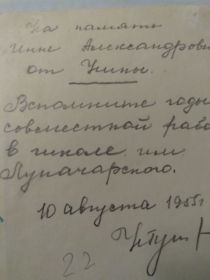 На память
Инне Александровн
от Унины.
Вспомните годы
совместной рабо
в школе им
Луначарского.
10 августа 1955г.
22